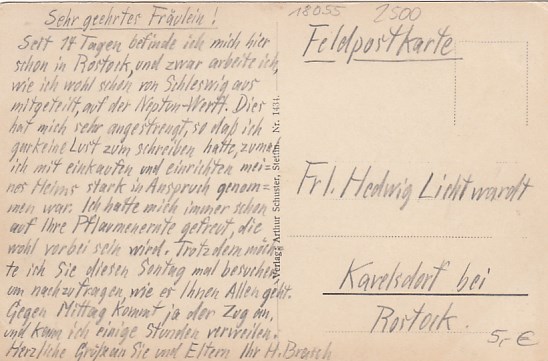 Sehr geehrtes Fräulein!
Seit 14 Tagen befinde ich mich hier
schon in Rostock, und zwar arbeite ich,
wie ich wohl schon von Schleswig aus
mitgeteilt, auf der Neptun-Werft. Dies
hat mich sehr angestrengt, so daß ich
garkeine Lust zum schreiben hatte, zumal
ich mit einkaufen und einrichten mei-
nes Heims stark in Anspruch genom-
men war. Ich hatte mich immer schon
auf Ihre Pflaumenernte gefreut, die
wohl vorbei sein wird. Trotzdem möch-
te ich Sie diesen Sontag mal besuchen
um nachzufragen, wie er Ihnen Allen geht.
Gegen Mittag kommt ja der Zug an,
und kann ich einige Stunden verweilen.
Herzliche Grüße an Sie und Eltern Ihr H. Brasch
Verlag: Arthur Schuster, Stettin. Nr. 1434.
18055
2500
Feldpostkarte
Frl. Hedwig Lichtwardt
Kavelsdorf bei
Rostock.
5,- €